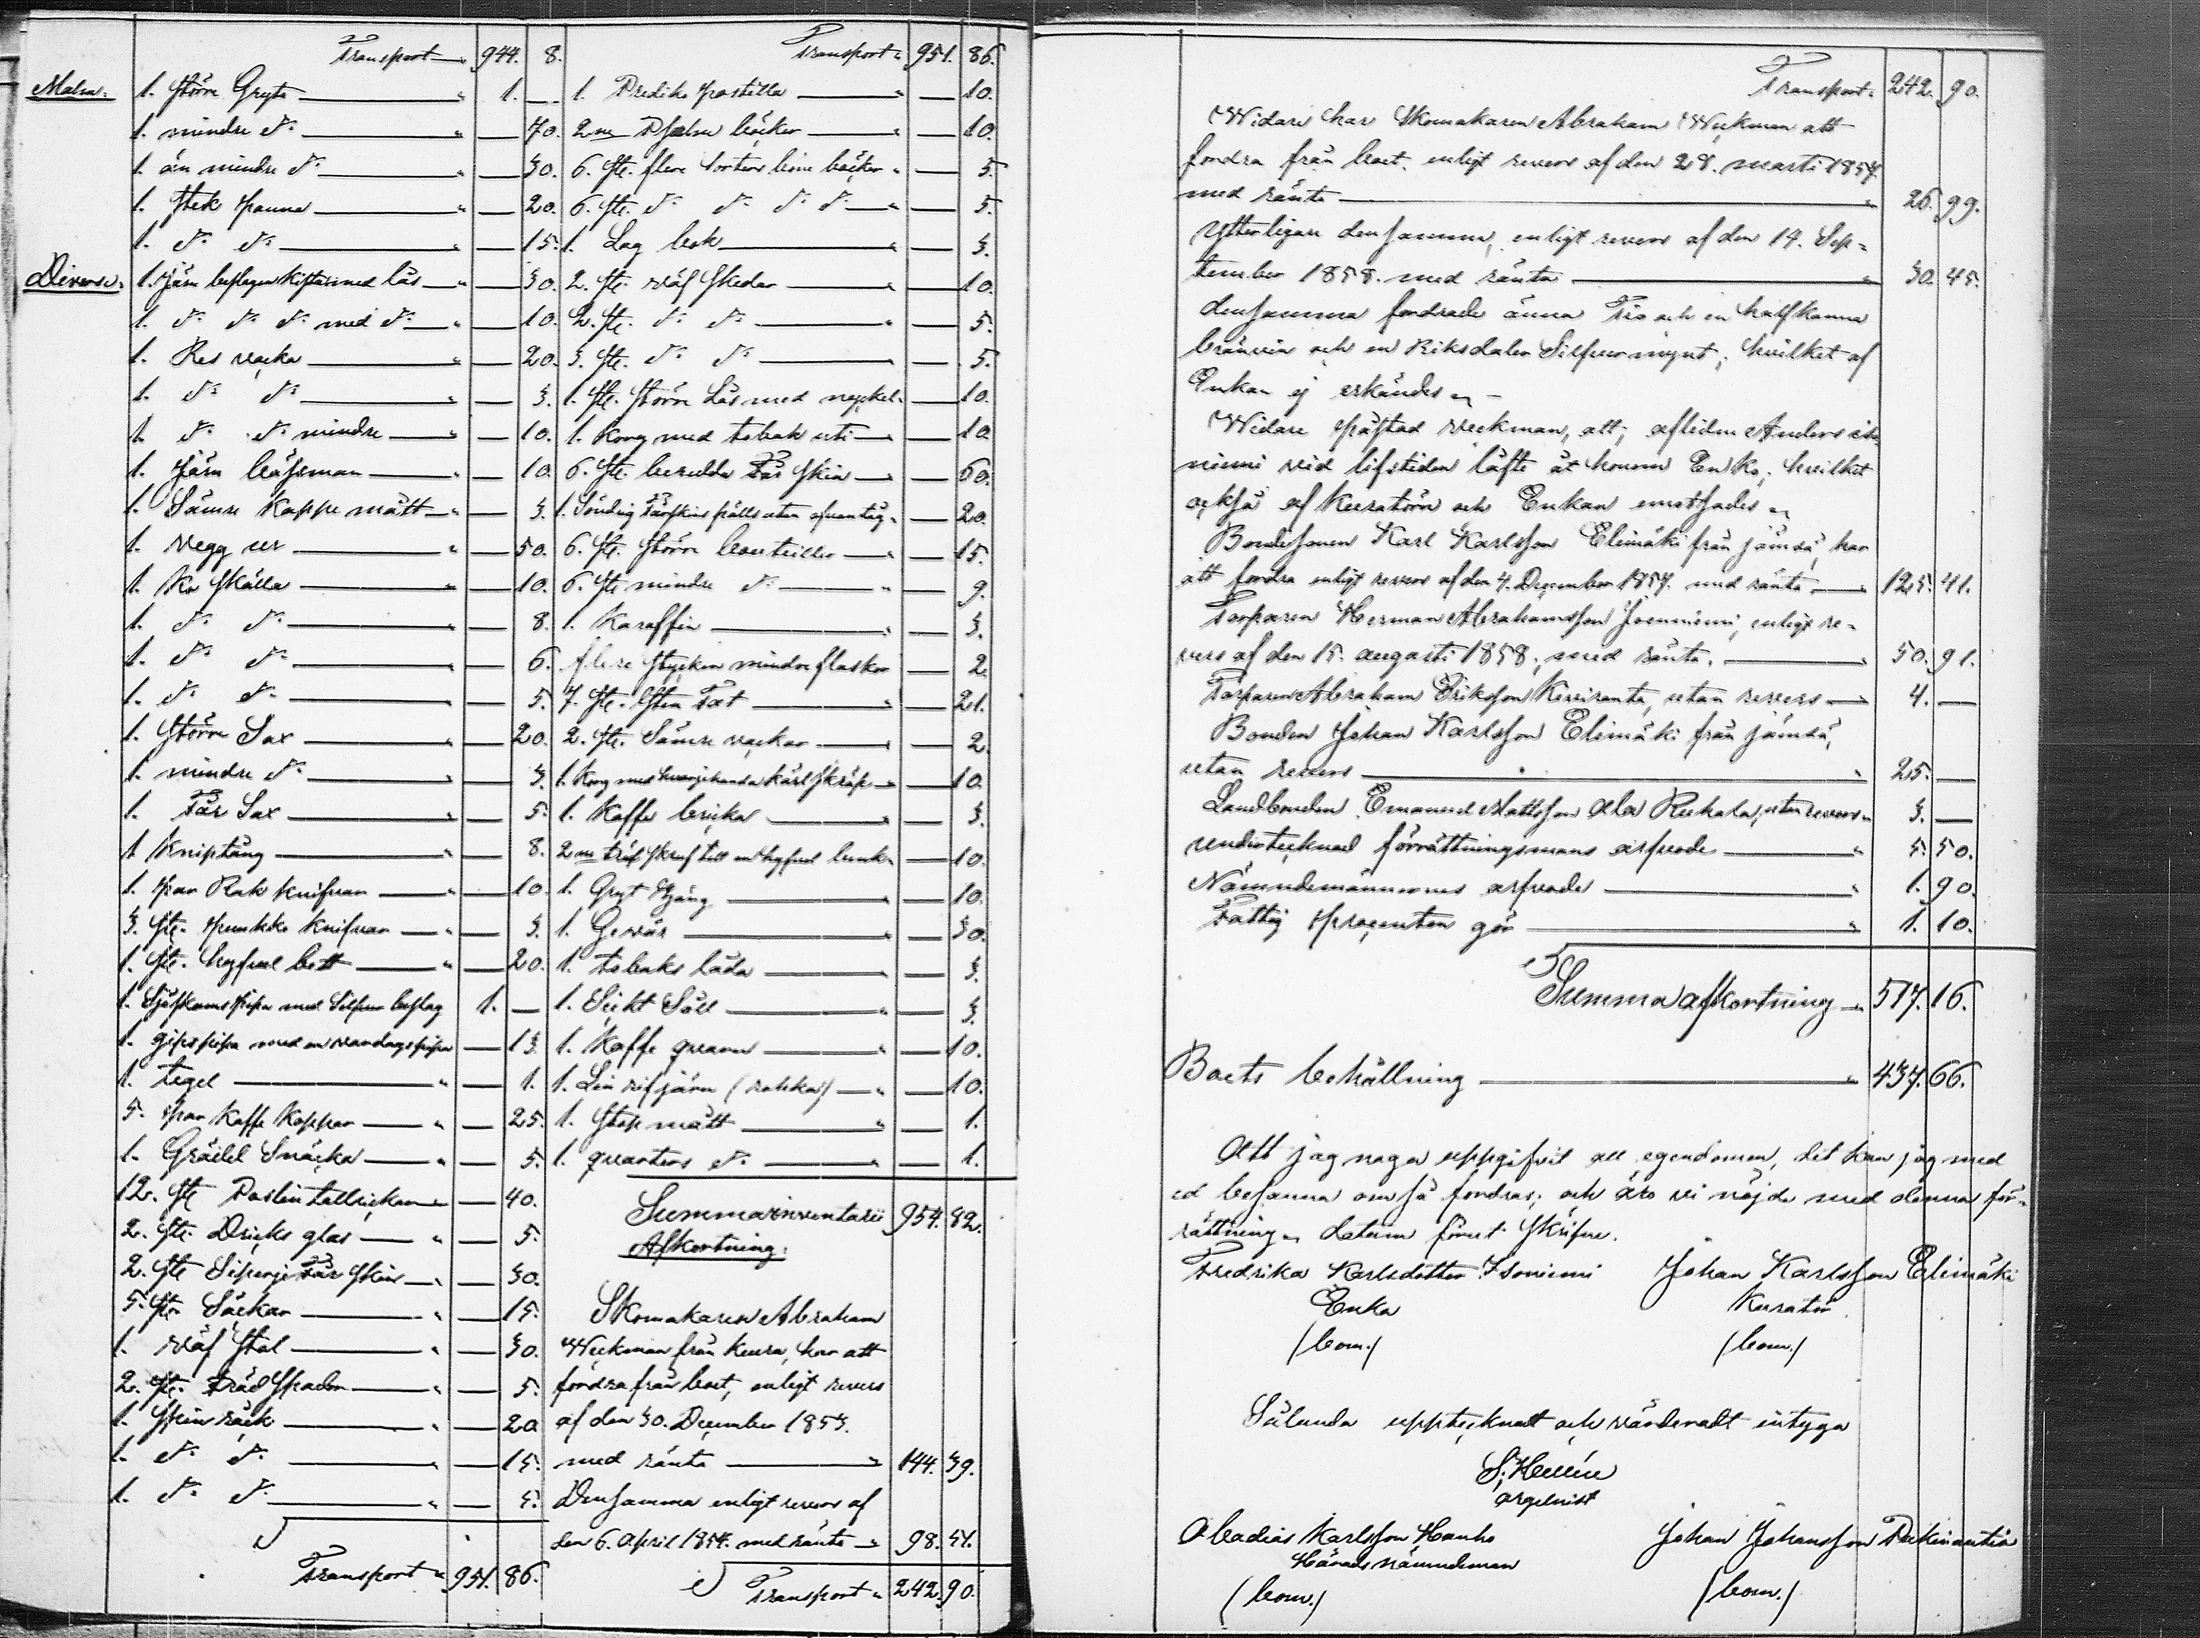 Transport „ 944. 8.
Malm: 1. större Gryta „ 1. —
1. mindre do „ — 70.
1. än mindre do „ — 30.
1. stek panna „ — 20.
1. do do „ — 15.
Diverse: 1. järn beslagen Kista med lås „ — 30.
1. do do do med do „ — 10.
1. Res väcka „ — 20.
1. do do „ — 3.
1. do do mindre „ — 10.
1. järn bässman „ — 10.
1. Sämre Kappe mått „ — 3.
1. vegg ur „ — 50.
1. Ko skälla „ — 10.
1. do do „ — 8.
1. do do „ — 6.
1. do do „ — 5.
1. större Sax „ — 20.
1. mindre do „ — 3.
1. Får Sax „ — 5.
1 Kniptång „ — 8.
1. par Rak knifvar „ — 10.
3. st. Knifvar „ — 3.
1. st. hyfvel bett „ — 20.
1. Sjöskums pipa med Silfver beslag 1. —
1. gips pipa med en vardagspipa — 13.
1. tegel „ — 1.
5. par Kaffe Koppar „ — 25.
1. Grädd Snäcka „ — 5.
12. st Poslin tallrickar „ — 40.
2. st. Dricks glas „ — 5.
2. st Får skin „ — 30.
5. st Säckar „ — 15.
1. väf stol „ — 30.
2. st. träd spadar „ — 5.
1. skin säck „ — 20
1. do do „ — 15.
1. do do „ — 5.
Transport „ 951. 86.
Transport „ 951. 86.
1. Prediko postilla „ — 10.
2ne Psalm böcker „ — 10.
6. st. flere sorters böcker „ — 5.
6. st. do do do do „ — 5.
1. Lag bok „ — 3.
2. st. väf skedar „ — 10.
2. st. do do „ — 5.
3. st. do do „ — 5.
1. st. större Lås med nyckel „ — 10.
1. korg med tobak uti „ — 10
6. st. beredda Får skin „ — 60.
1. Söndrig Fårskins fälls utan ofvantåg „ — 20.
6. st. större bouteiller „ — 15.
6. st mindre do „ — 9.
1. Karaffin „ — 3.
flere stycken mindre flaskor — 2.
7. st. sten Fat „ — 21.
2. st. Sämre väckar „ — 2.
1. Korg med kärl skräp „ — 10.
1. Kaffe bricka „ — 3.
2ne träd skruf till en hyfvel bänk „ — 10.
1. Gryt stjäng — 10.
1. Gevär „ — 30.
1. tobaks låda „ — 3.
1. Sickt Såll „ — 3.
1. Kaffe quarn „ — 10.
1. Lin rifjärn (rohka) „ — 10.
1. Stop mått „ — 1.
1. quarters do „ — 1.
Summa inventarii 954. 82.
Afkortning:
Skomakaren Abraham
Weckman från Keura, har att
fordra från boet, enligt revers
af den 30. December 1853.
med ränta „ 144. 39.
Densamma enligt revers af
den 6. April 1854. med ränta „ 98. 51.
Transport „ 242. 90.
Transport „ 242. 90.
Widare har Skomakaren Abraham Weckman att
fordra från boet. enligt revers af den 28. marti 1857.
med ränta „ 26. 99.
Ytterligare densamma, enligt revers af den 14. Sep=
tember 1858. med ränta „ 30. 45.
densamma fordrade ännu Tio och en half kanna
bränvin och en Riksdaler Silfver mynt; hvilket af
Enkan ej erkändes „ —
Widare påstad Weckman, att; aflidne Anders Iso
niemi vid lifstiden låfte åt honom En Ko; hvilket
åckså af Kuratorn och Enkan emotsades „
Bondesonen Karl Karlsson Elimäki från jämsä, har
att fordra enligt revers af den 4. December 1857. med ränta „ 125. 41.
Torparen Herman Abrahamsson Joenniemi, enligt re=
vers af den 15. augusti 1858. med ränta. „ 50. 91.
Torparen Abraham Eriksson Kiviranta, utan revers — 4. —
Bonden Johan Karlsson Elimäki från jämsä,
utan revers „ 25. —
Landbonden Emanuel Mattsson Ala Ruhala, utan revers „ 3. —
undertecknad förrättningsmans arfvode „ 5. 50.
Nämndemännernas arfvode „ 1. 90.
Fattig procenten gör „ 1. 10.
Summa afkortning „ 517. 16.
Boets behållning „ 437. 66.
Att jag noga uppgifvit all egendomen, det kan jag med
ed besanna om så fordras; och äro vi nöjda med denna för=
rättning „ datum förut skrifne.
Fredrika Karlsdotter Isoniemi Johan Karlsson Elimäki
Enka Kurator
(bom.) (bom.)
Sålunda upptecknatt och värderadt intyga
S. Hellén
orgelnist
Abadias Karlsson Hanho Johan Johansson
Härads nämndeman
(bom.) (bom.)